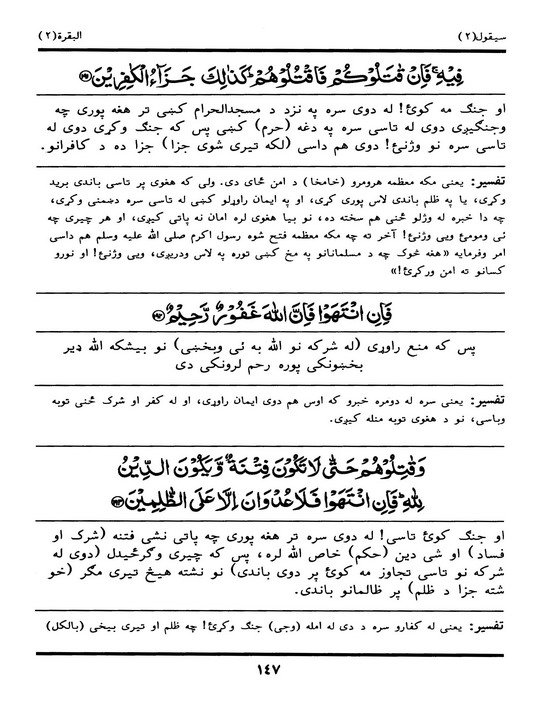 سيقول(٢) البقرة(٢)
فِيْهِ ۚ فَاِنْ قٰتَلُوْكُمْ فَاقْتُلُوْهُمْ ؕ كَذٰلِكَ جَزَآءُ الْكٰفِرِيْنَ ﴿١٩١﴾
او جنگ مه کوئ! له دوى سره په نزد د مسجدالحرام کښى تر هغه پورى چه
وجنگيږى دوى له تاسى سره په دغه (حرم) کښى پس که جنگ وکړى دوى له
تاسى سره نو وژنئ! دوى هم داسى (لکه تيرى شوى جزا) جزا ده د کافرانو.
تفسير: يعنى مکه معظمه هرومرو (خامخا) د امن ځاى دى. ولى که هغوى پر تاسى باندى بريد
وکړى، يا په ظلم باندى لاس پورى کړى، او په ايمان راوړلو کښى له تاسى سره دښمنى وکړى،
چه دا خبره له وژلو ځنى هم سخته ده، نو بيا هغوى لره امان نه پاتى کيږى، او هر چيرى چه
ئى ومومئ ويى وژنئ! آخر ته چه مکه معظمه فتح شوه رسول اکرم صلى الله عليه وسلم هم داسى
امر وفرمايه «هغه څوک چه د مسلمانانو په مخ کښى توره په لاس ودريږى، ويى وژنئ! او نورو
کسانو ته امن ورکړئ!»
فَاِنِ انْتَهَوْا فَاِنَّ اللّٰهَ غَفُوْرٌ رَّحِيْمٌ ﴿١٩٢﴾
پس که منع راوړى (له شرکه نو الله به ئى وبخښى) نو بيشکه الله ډير
بخښونکى پوره رحم لرونکى دى
تفسير: يعنى سره له دومره خبرو که اوس هم دوى ايمان راوړى، او له کفر او شرک ځنى توبه
وباسى، نو د هغوى توبه منله کيږى.
وَقٰتِلُوْهُمْ حَتّٰى لَا تَكُوْنَ فِتْنَةٌ وَّيَكُوْنَ الدِّيْنُ
لِلّٰهِ ؕ فَاِنِ انْتَهَوْا فَلَا عُدْوَانَ اِلَّا عَلَى الظّٰلِمِيْنَ ﴿١٩٣﴾
او جنگ کوئ تاسى! له دوى سره تر هغه پورى چه پاتى نشى فتنه (شرک او
فساد) او شى دين (حکم) خاص الله لره، پس که چيرى وگرځيدل (دوى له
شرکه نو تاسى تجاوز مه کوئ پر دوى باندى) نو نشته هيڅ تيرى مگر (خو
شته جزا د ظلم) پر ظالمانو باندى.
تفسير: يعنى له کفارو سره د دى له امله (وجى) جنگ وکړئ! چه ظلم او تيرى بيخى (بالکل)
١٤٧